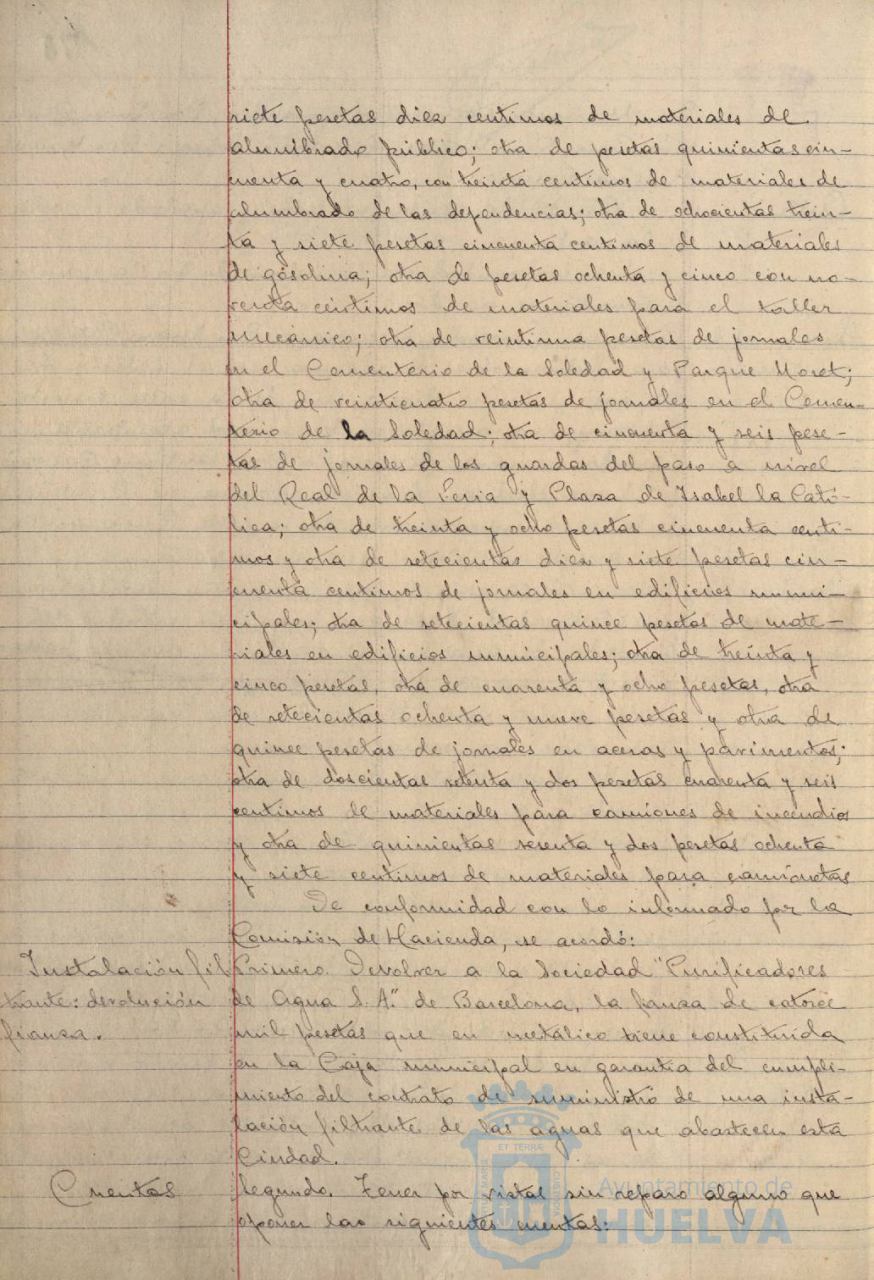 siete pesetas diez centimos de materiales de
alumbrado público; otra de pesetas quinientas cin-
cuenta y cuatro, con treinta centimos de materiales de
alumbrado de las dependencias; otra de ochocientas trein-
ta y siete pesetas cincuenta centimos de materiales
de gasolina; otra de pesetas ochenta y cinco con no-
venta céntimos de materiales para el taller
mecánico; otra de veintiuna pesetas de jornales
en el Cementerio de la Soledad y Parque Moret;
otra de veinticuatro pesetas de jornales en el Cemen-
terio de la Soledad; otra de cincuenta y seis pese-
tas de jornales de los guardas del paso a nivel
del Real de la Feria y Plaza de Isabel la Cató-
lica; otra de treinta y ocho pesetas cincuenta centi-
mos y otra de setecientas diez y siete pesetas cin-
cuenta centimos de jornales en edificios muni-
cipales; otra de setecientas quince pesetas de mate-
riales en edificios municipales; otra de treinta y
cinco pesetas, otra de cuarenta y ocho pesetas, otra
de setecientas ochenta y nueve pesetas y otra de
quince pesetas de jornales en aceras y pavimentos;
otra de doscientas setenta y dos pesetas cuarenta y seis
centimos de materiales para camiones de incendios
y otra de quinientas sesenta y dos pesetas ochenta
y siete centimos de materiales para camionetas
De conformidad con lo informado por la
Comisión de Hacienda, se acordó:
Instalación fil
trante: devolución
fianza.
Primero. Devolver a la Sociedad "Purificadores
de Agua S.A." de Barcelona, la fianza de catorce
mil pesetas que en metálico tiene constituida
en la Caja municipal en garantia del cumpli-
miento del contrato de suministro de una insta-
lación filtrante de las aguas que abastecen esta
Ciudad.
Cuentas
Segundo. Tener por vistas sin reparo alguno que
oponer las siguientes cuentas:
Ayuntamiento de
HUELVA